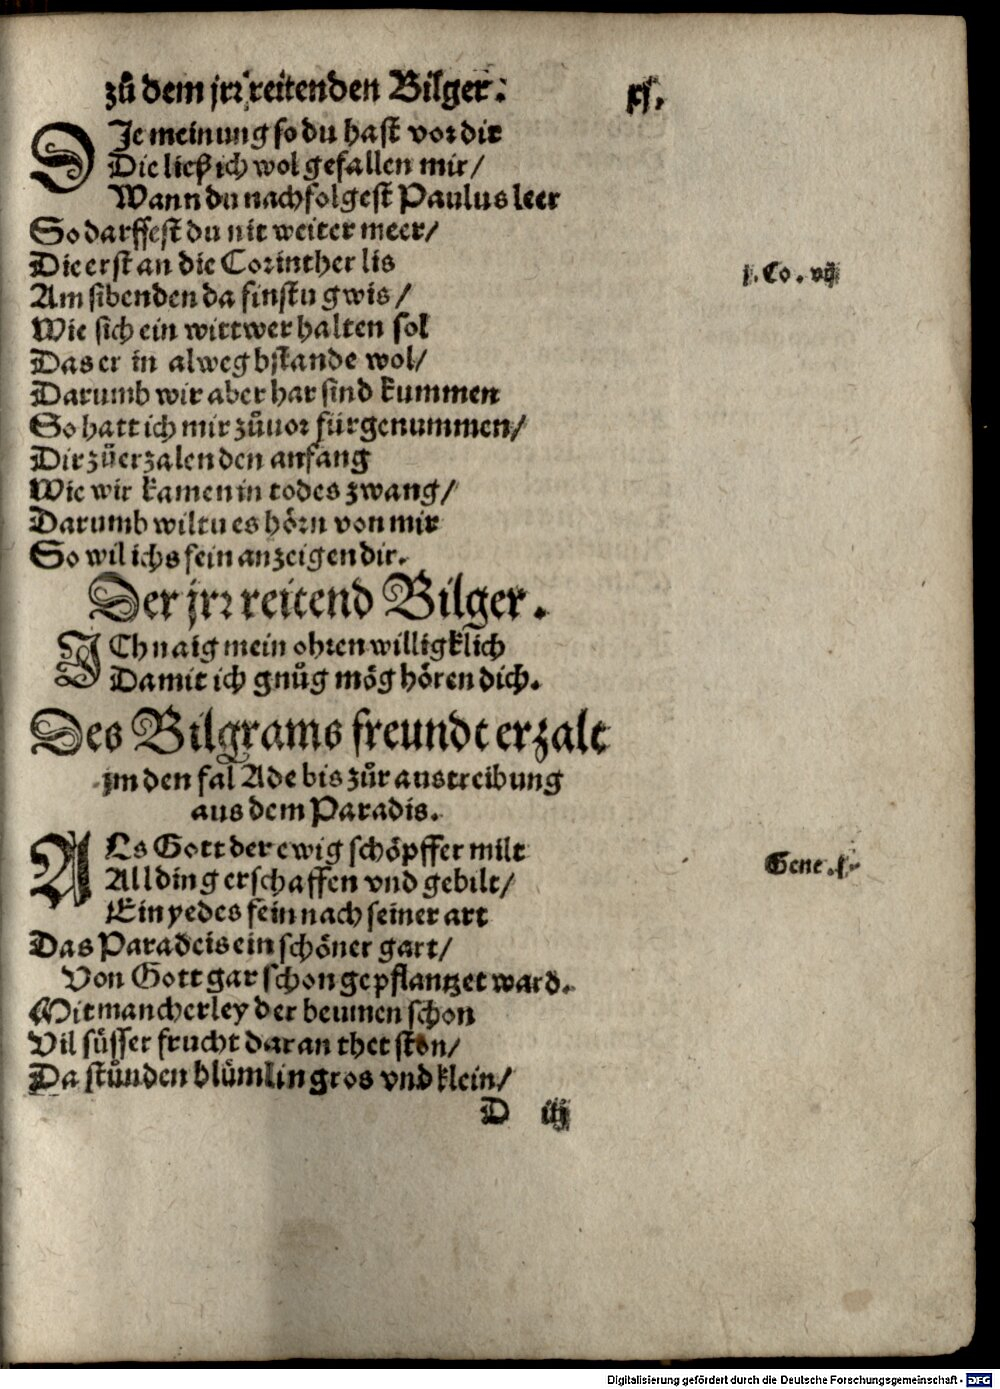 zů dem jrr reitenden Bilger.
xj.
DJe meinung so du hast vor dir
Die ließ ich wol gefallen mir/
Wann du nachfolgest Paulus leer
So darffest du nit weiter meer/
Die erst an die Corinther lis
j. Co. vij
Am sibenden da finstu gwis/
Wie sich ein wittwer halten sol
Das er in alweg bstande wol/
Darumb wir aber har sind kummen
So hatt ich mir zůuor fürgenummen/
Dir zů erzalen den anfang
Wie wir kamen in todes zwang/
Darumb wiltu es hörn von mir
So wil ichs fein anzeigen dir.
Der jrr reitend Bilger.
ICh naig mein ohren willigklich
Damit ich gnůg mög hören dich.
Des Bilgrams freundt erzalt
jm den fal Ade bis zůr austreibung
aus dem Paradis.
ALs Gott der ewig schöpffer milt
Gene. j.
All ding erschaffen vnd gebilt/
Ein yedes fein nach seiner art
Das Paradeis ein schöner gart/
Von Gott gar schon gepflantzet ward.
Mit mancherley der beumen schon
Vil süsser frucht daran thet ston/
Da stůnden blümlin gros vnd klein/
D iij
Digitalisierung gefördert durch die Deutsche Forschungsgemeinschaft - DFG